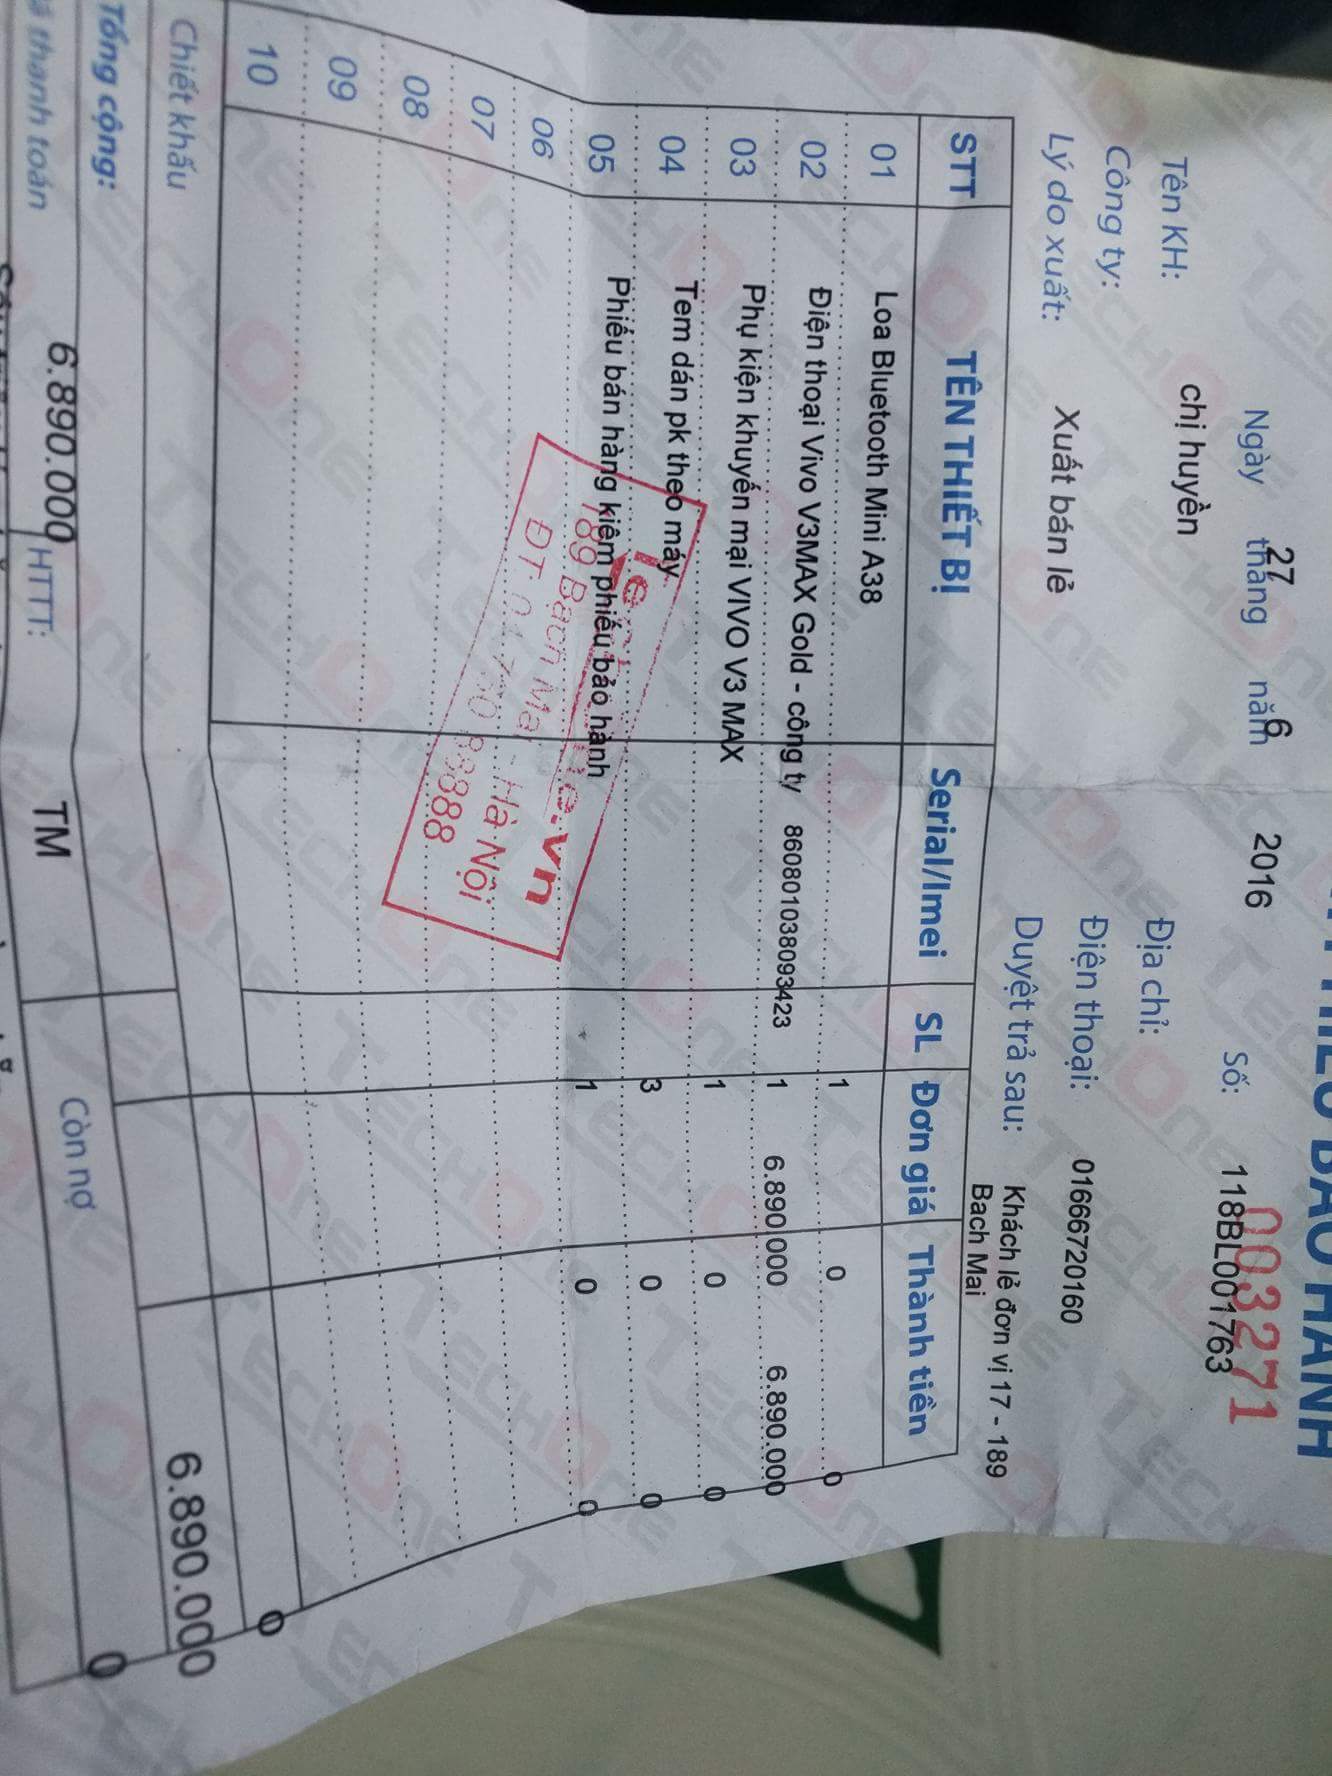 BẢO HÀNH
003271
Ngày 27 tháng 6 năm 2016
Số: 118BL001763
Tên KH: chị huyền
Địa chỉ:
Công ty:
Điện thoại: 01666720160
Lý do xuất: Xuất bán lẻ
Duyệt trả sau: Khách lẻ đơn vị 17 - 189
Bach Mai
STT TÊN THIẾT BỊ Serial/Imei SL Đơn giá Thành tiền
01 Loa Bluetooth Mini A38 1 0 0
02 Điện thoại Vivo V3MAX Gold - công ty 860801038093423 1 6.890.000 6.890.000
03 Phụ kiện khuyến mại VIVO V3 MAX 1 0 0
04 Tem dán pk theo máy 3 0 0
05 Phiếu bán hàng kiêm phiếu bảo hành 1 0 0
06
07
08
09
10
189 Bạch Mai - Hà Nội
Chiết khấu 0
Tổng cộng: 6.890.000
thanh toán 6.890.000 HTTT: TM Còn nợ 0